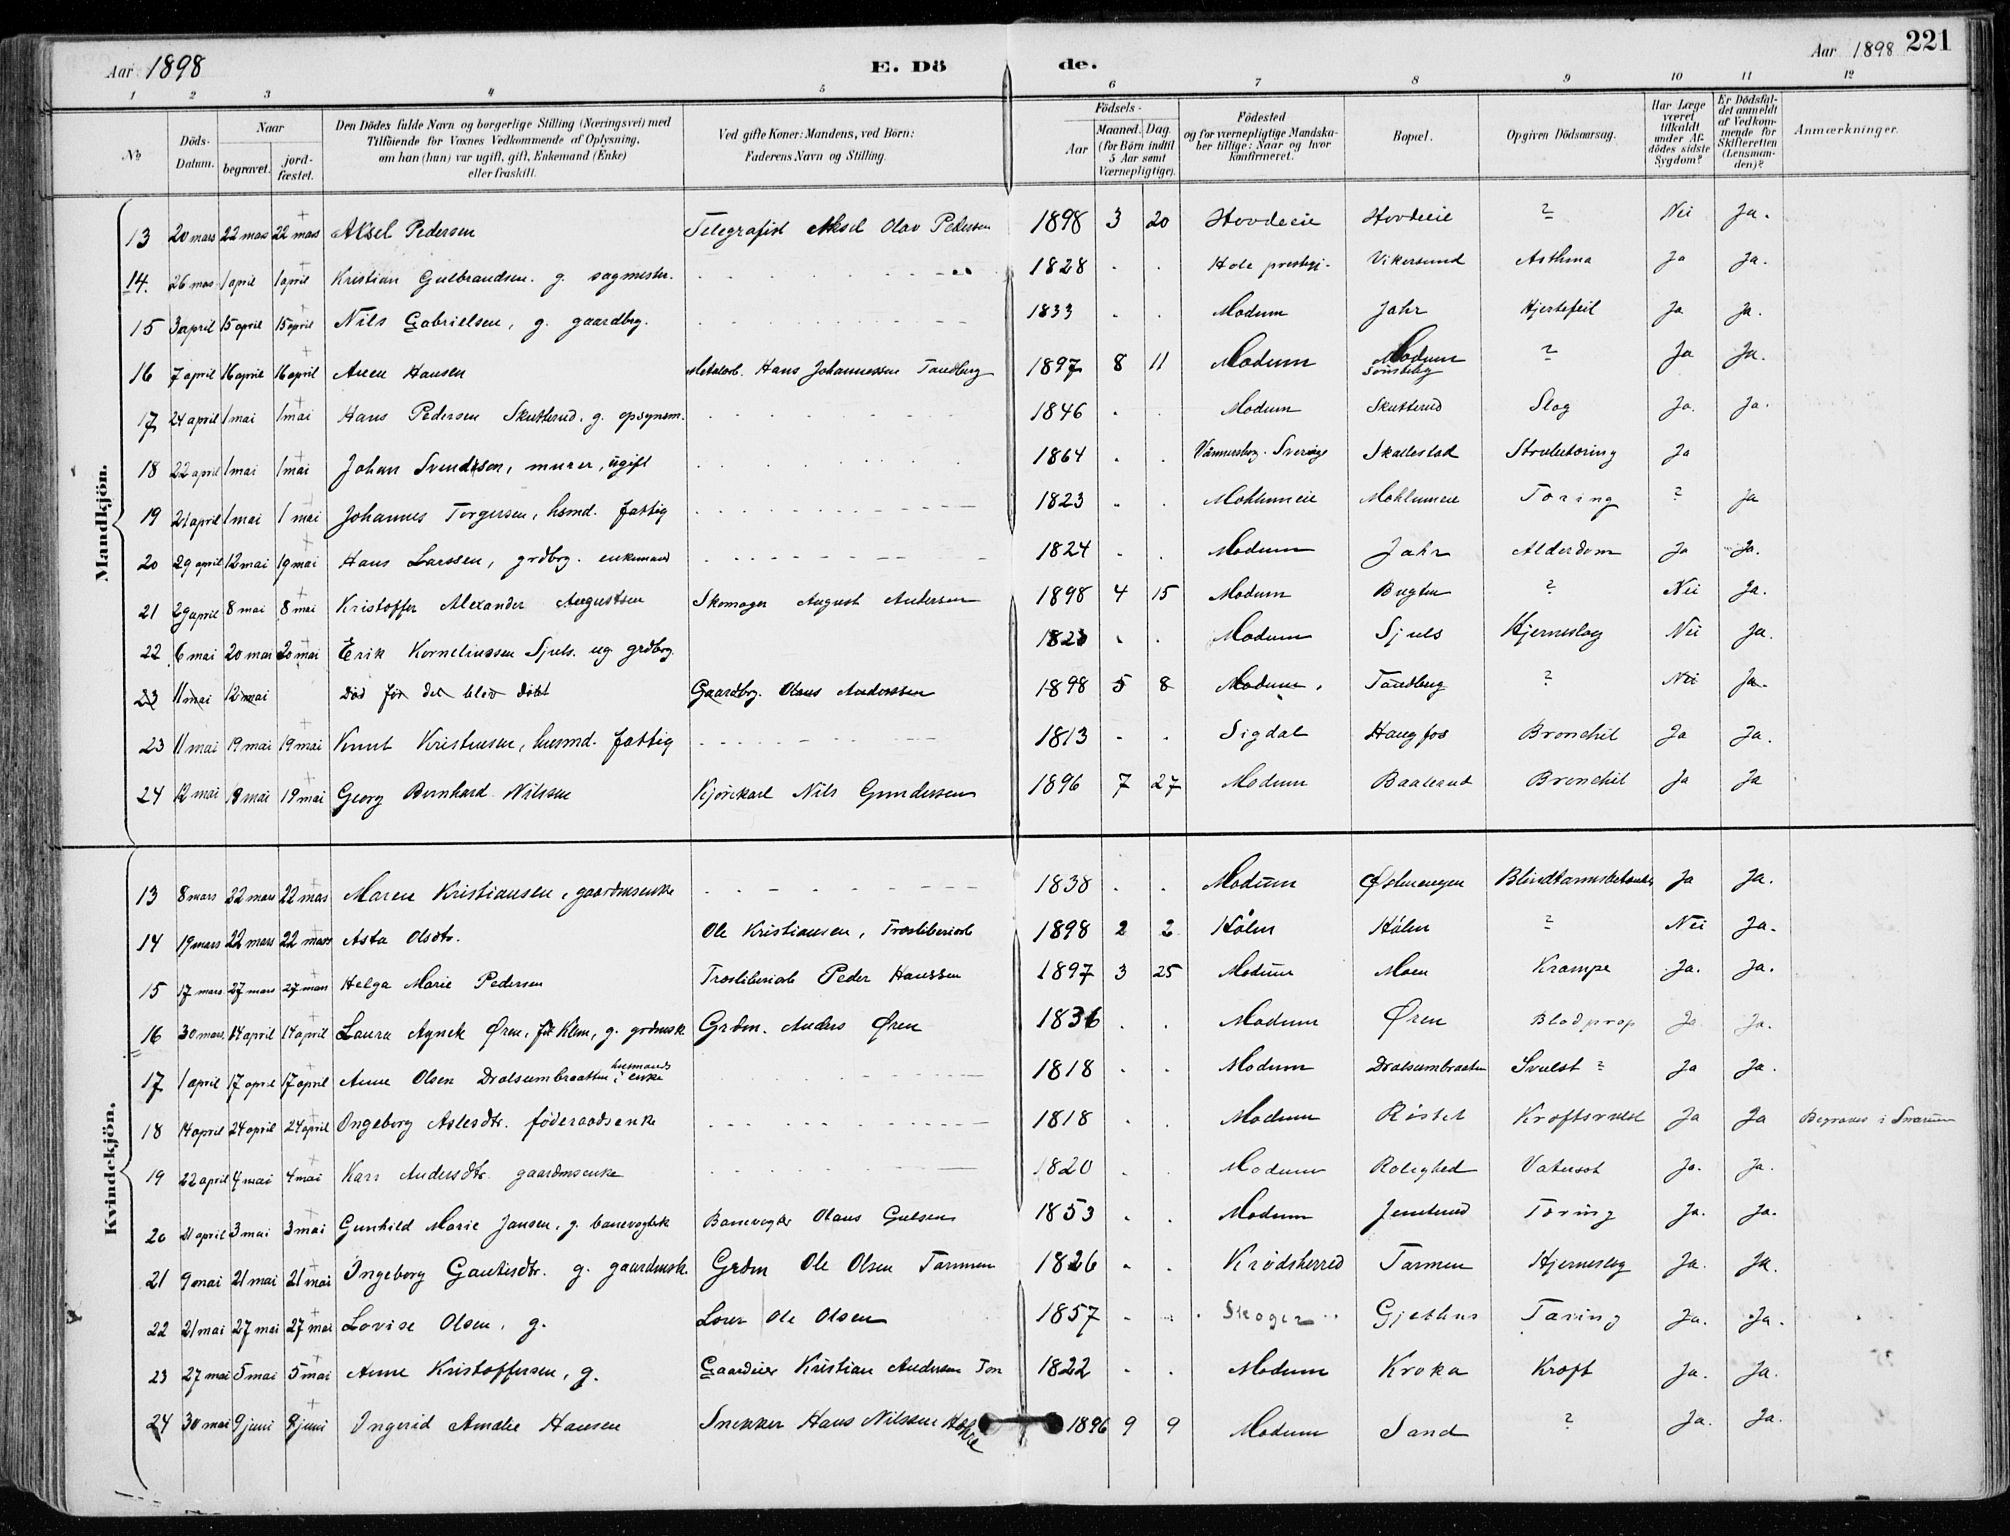 Aar 1898 E. Dö de. Aar 1898 221
1 2 3 4 5 6 7 8 9 10 11 12
№ Döds-Datum. Naar begravet. jord-fæstet. Den Dödes fulde Navn og borgerlige Stilling (Næringsvei) med Tilföiende for Voxnes Vedkommende af Oplysning, om han (hun) var ugift, gift, Enkemand (Enke) eller fraskilt. Ved gifte Koner: Mandens, ved Börn: Faderens Navn og Stilling. Födsels- Aar Maaned. Dag. (for Börn indtil 5 Aar samt Værnepligtige). Födested og for værnepligtige Mandskaber tillige: Naar og hvor konfirmeret. Bopæl. Opgiven Dödsaarsag. Har Læge været tilkaldt under Afdödes sidste Sygdom? Er Dödsfaldet anmeldt af Vedkommende for Skifteretten (Lensmanden)? Anmærkninger.
Mandkjön.
13 20 mars 22 mars 22 mars Aksel Pedersen Telegrafist Aksel Olav Pedersen 1898 3 20 Hovdeeie Hovdeeie ? Nei Ja.
14. 26 mars 1 april 1 april Kristian Gulbrandsen. g. sagmester. 1828 . . Hole prestegj. Vikersund Asthma Ja Ja.
15 3 april 15 april 15 april Nils Gabrielsen, g. gaardbrg. 1833 . . Modum Jahr Hjertefeil Ja Ja.
16 7 april 16 april 16 april Hansen Hans Johannessen Tandberg 1897 8 11 Modum Modum ? Ja Ja.
17 24 april 1 mai 1 mai Hans Pedersen Skutterud. g. opsynsm. 1846 . . Modum Skutterud Slag Ja. Ja.
18 22 april 1 mai 1 mai Johan Svendsen, murer, ugift 1864 . . Sverige Skallestad Strubetæring Ja
19 21 april 1 mai 1 mai Johannes Torgersen, hsmd. fattig 1823 . . Tæring ? ja
20 29 april 12 mai 19 mai Hans Larssen, grdbrg. enkemand 1824 . . Modum Jahr Alderdom Ja Ja.
21 29 april 8 mai 8 mai Kristoffer Alexander Augustsen Skomager August Andersen 1898 4 15 Modum Bugten ? Nei Ja.
22 6 mai 20 mai 20 mai Erik Korneliussen Sjuls. ug grdbrg. . . Modum Sjuls Hjerneslag Nei Ja.
23 11 mai 12 mai Död før det blev døbt Gaardbrg. Olaus Anderssen 1898 5 8 Modum. Tandberg ? Nei Ja.
23 11 mai 19 mai 19 mai Knut Kristensen, husmd. fattig 1813 . . Sigdal Haugfos Bronchit Ja Ja.
24 12 mai 19 mai 19 mai Georg Bernhard Nilssen Kjørekarl Nils Gundersen 1896 7 27 Modum Baalerud Bronchit Ja Ja
Kvindekjön.
13 8 mars 22 mars 22 mars Maren Kristiansen, gaardmsenke 1838 . . Modum Østmoengen Ja Ja.
14 19 mars 22 mars 22 mars Asta Olsdtr. Ole Kristiansen, Træsliberiarb 1898 2 2 Hølen Hølen ? Nei Ja.
15 17 mars 27 mars 27 mars Helga Marie Pedersen Træsliberiarb Peder Hanssen 1897 3 25 Modum Moen Krampe Ja. Ja.
16 30 mars. 14 april 14 april Laura Agnete Øren, g. grdmsk Grdm. Anders Øren 1836 . . Modum Øren Blodprop Ja Ja.
17 1 april 17 april 17 april Anne Olsen Drolsumbraatten husmandsenke 1818 . . Modum Drolsumbraaten Svulst ? Ja Ja.
18 14 april 24 april 24 april Ingeborg Aslesdtr. føderaadsenke 1818 . . Modum Røstet Kræftsvulst Ja Ja Begraves i Snarum
19 22 april 4 mai 4 mai Kari Andersdtr. gaardmsenke 1820 . . Modum Rolighed Vatersot Ja. Ja.
20 21 april 3 mai 3 mai Gunhild Marie Jansen, g. banevogtersk Banevogter Olaus Gulsen 1853 . . Modum Tæring Ja. Ja.
21 9 mai 21 mai 21 mai Ingeborg Gautesdtr. g. gaardmsk. Grdm Ole Olsen Tarmen 1826 . . Krødsherred Tarmen Hjerneslag Ja. Ja.
22 21 mai 27 mai 27 mai Lovise Olsen, g. Ole Olsen 1857 . . Skoger Gjethus Tæring Ja. Ja.
23 27 mai 5 mai 5 mai Anne Kristoffersen, g. Gaardeier Kristian Andersen 1822 . . Modum Kroka Kræft Ja. Ja.
24 30 mai 9 juni 9 juni Ingerid Amalie Hansen Snekker Hans Nilssen 1896 9 9 Modum Sand ? Ja. Ja.